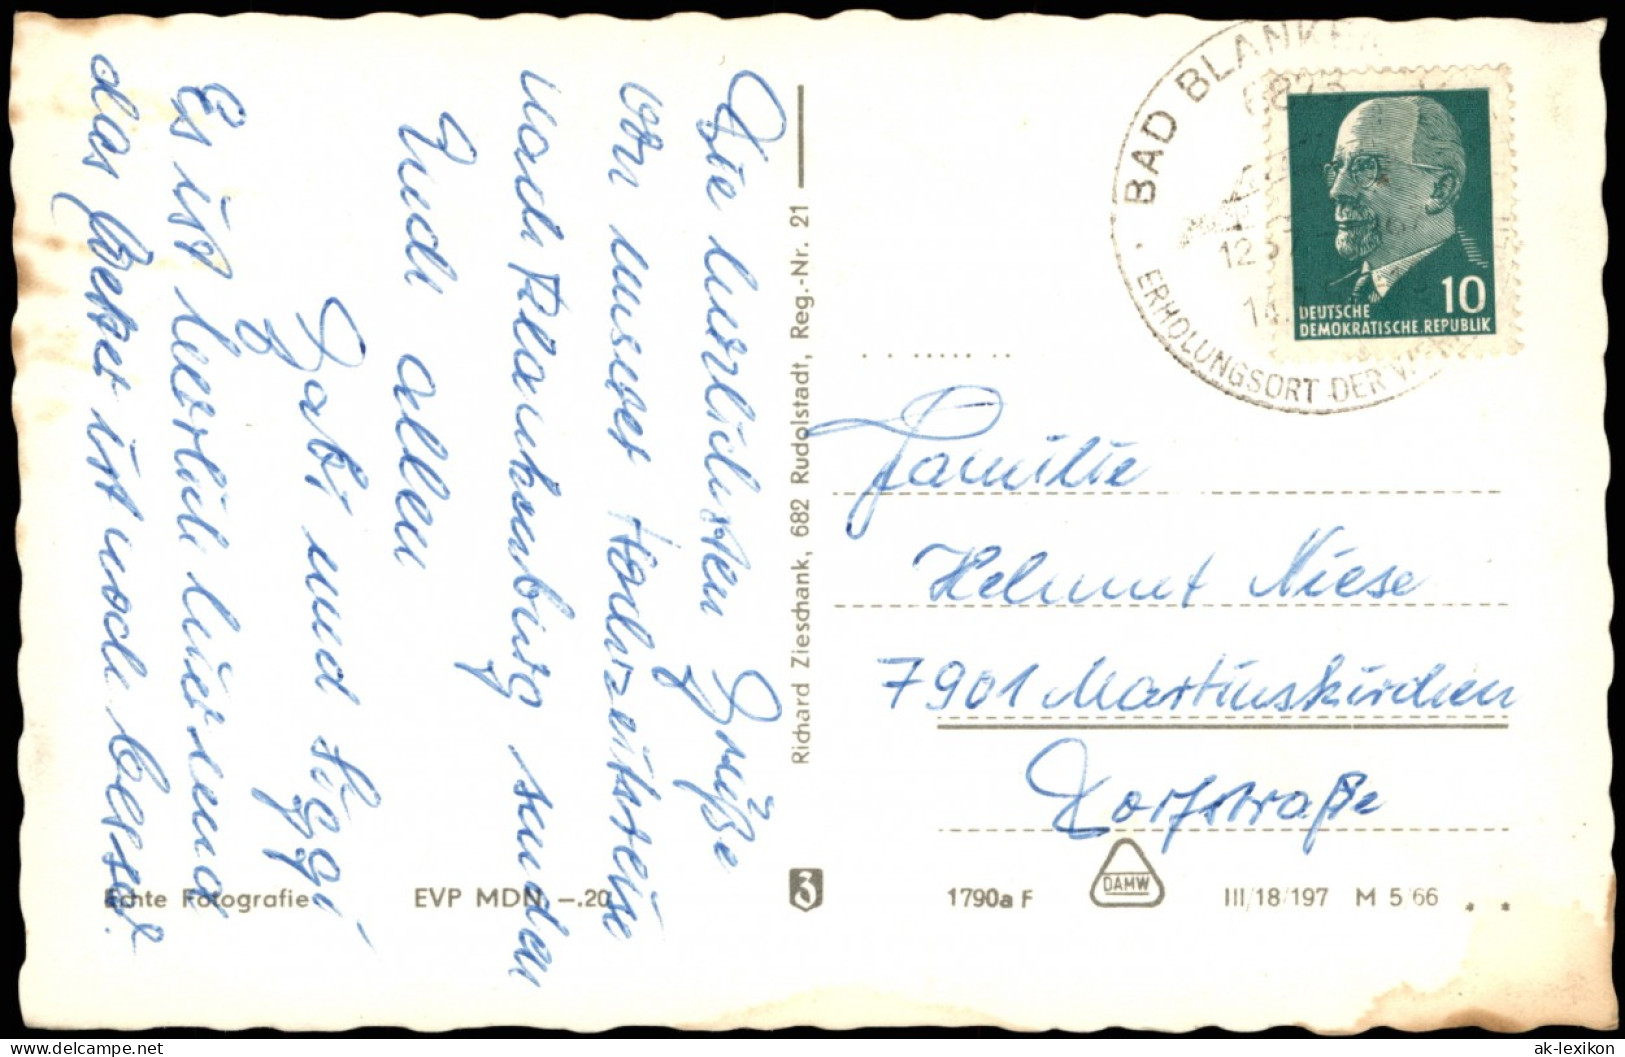 Die herzlichsten Grüße
von unserer Hochzeitsreise
nach Blankenburg senden
Euch allen
Gabi und Siggi
Es ist herrlich hier und
das Wetter ist noch besser.
Richard Zieschank, 682 Rudolstadt, Reg.-Nr. 21
Echte Fotografie
EVP MDN –.20
3
BAD BLANKEN
6823
14
ERHOLUNGSORT DER WERK
10
DEUTSCHE
DEMOKRATISCHE REPUBLIK
Familie
Helmut Niese
7901 Martinskirchen
Dorfstraße
1790a F
DAMW
III/18/197 M 5/66
ak-lexikon